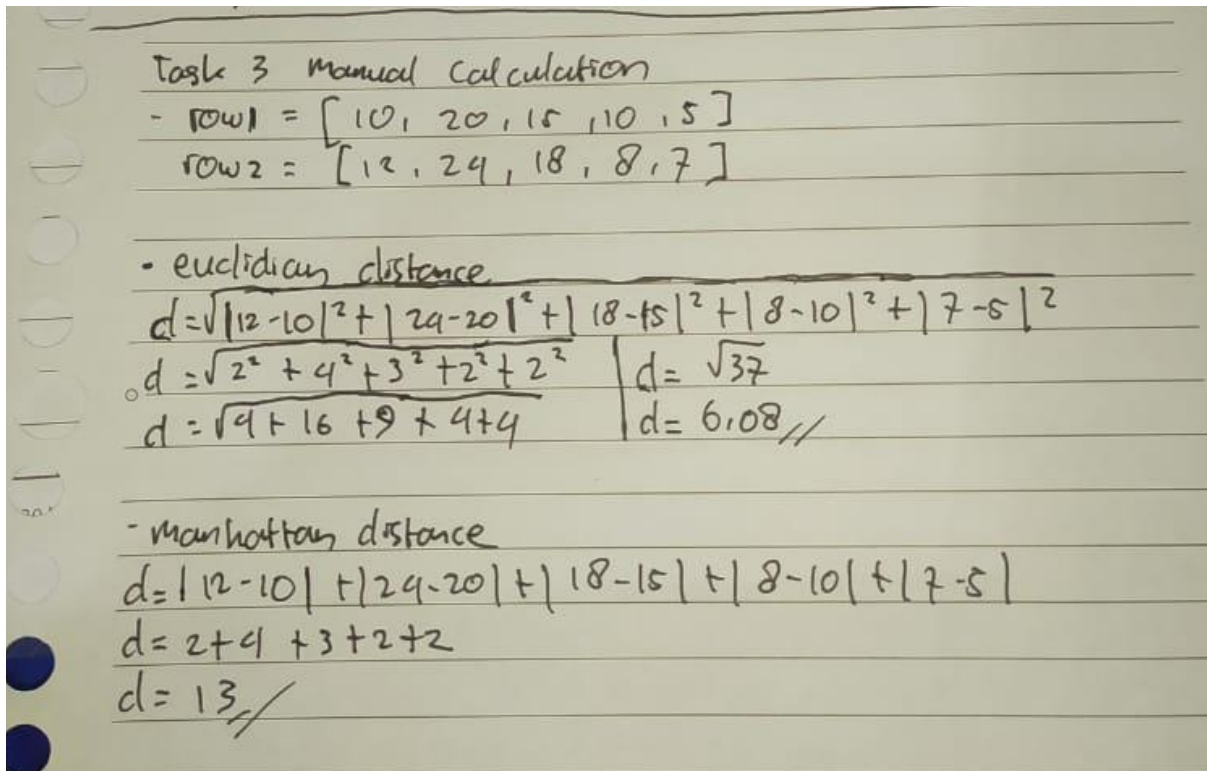 Task 3 Manual Calculation
- row1 = [10, 20, 15, 10, 5]
row2 = [12, 24, 18, 8, 7]
- euclidian distance
d=√|12-10|²+|24-20|²+|18-15|²+|8-10|²+|7-5|²
d=√2²+4²+3²+2²+2² | d= √37
d=√4+16+9+4+4 | d= 6,08//
- manhattan distance
d=|12-10|+|24-20|+|18-15|+|8-10|+|7-5|
d= 2+4+3+2+2
d= 13//